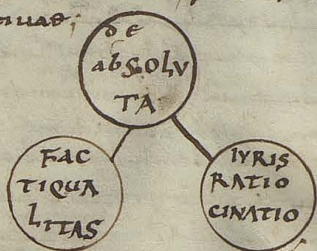 de
absolu
TA
FAC
TIQUA
LITAS
IVRIS
RATIO
CINATIO